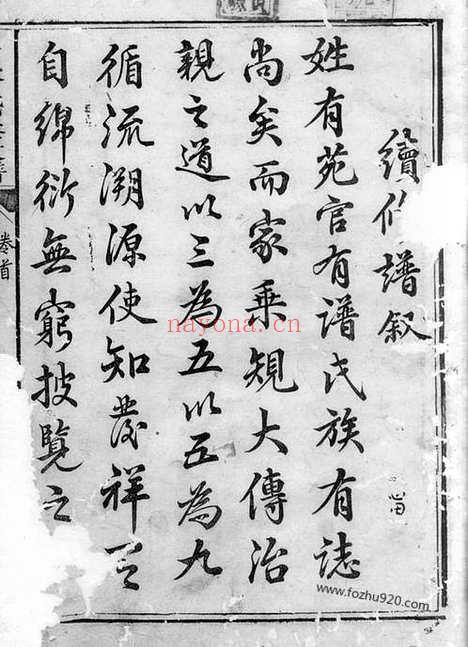 續修譜叙
姓有苑官有譜氏族有誌
尚矣而家乘規大傳治
親之道以三為五以五為九
循流溯源使知發祥有
自綿衍無窮披覽之
卷首
nayona.cn
www.fozhu920.com